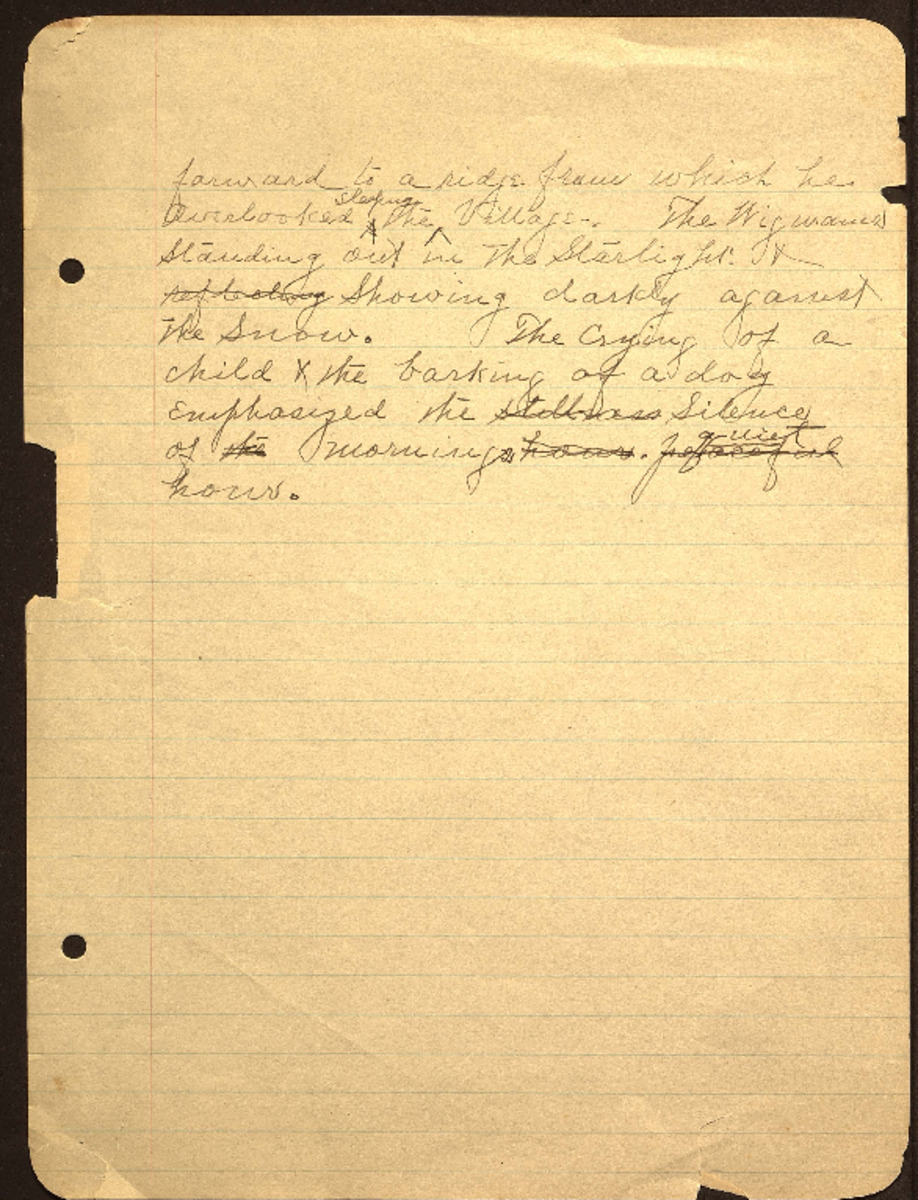 forward to a ridge from which he
sleeping
Overlooked the Village. The Wigwams
Standing out in the Starlight &
reflecting Showing darkly against
the Snow. The Crying of a
child & the barking of a dog
Emphasized the stillness Silence
quiet
of the mornings hour. peaceful
hour.